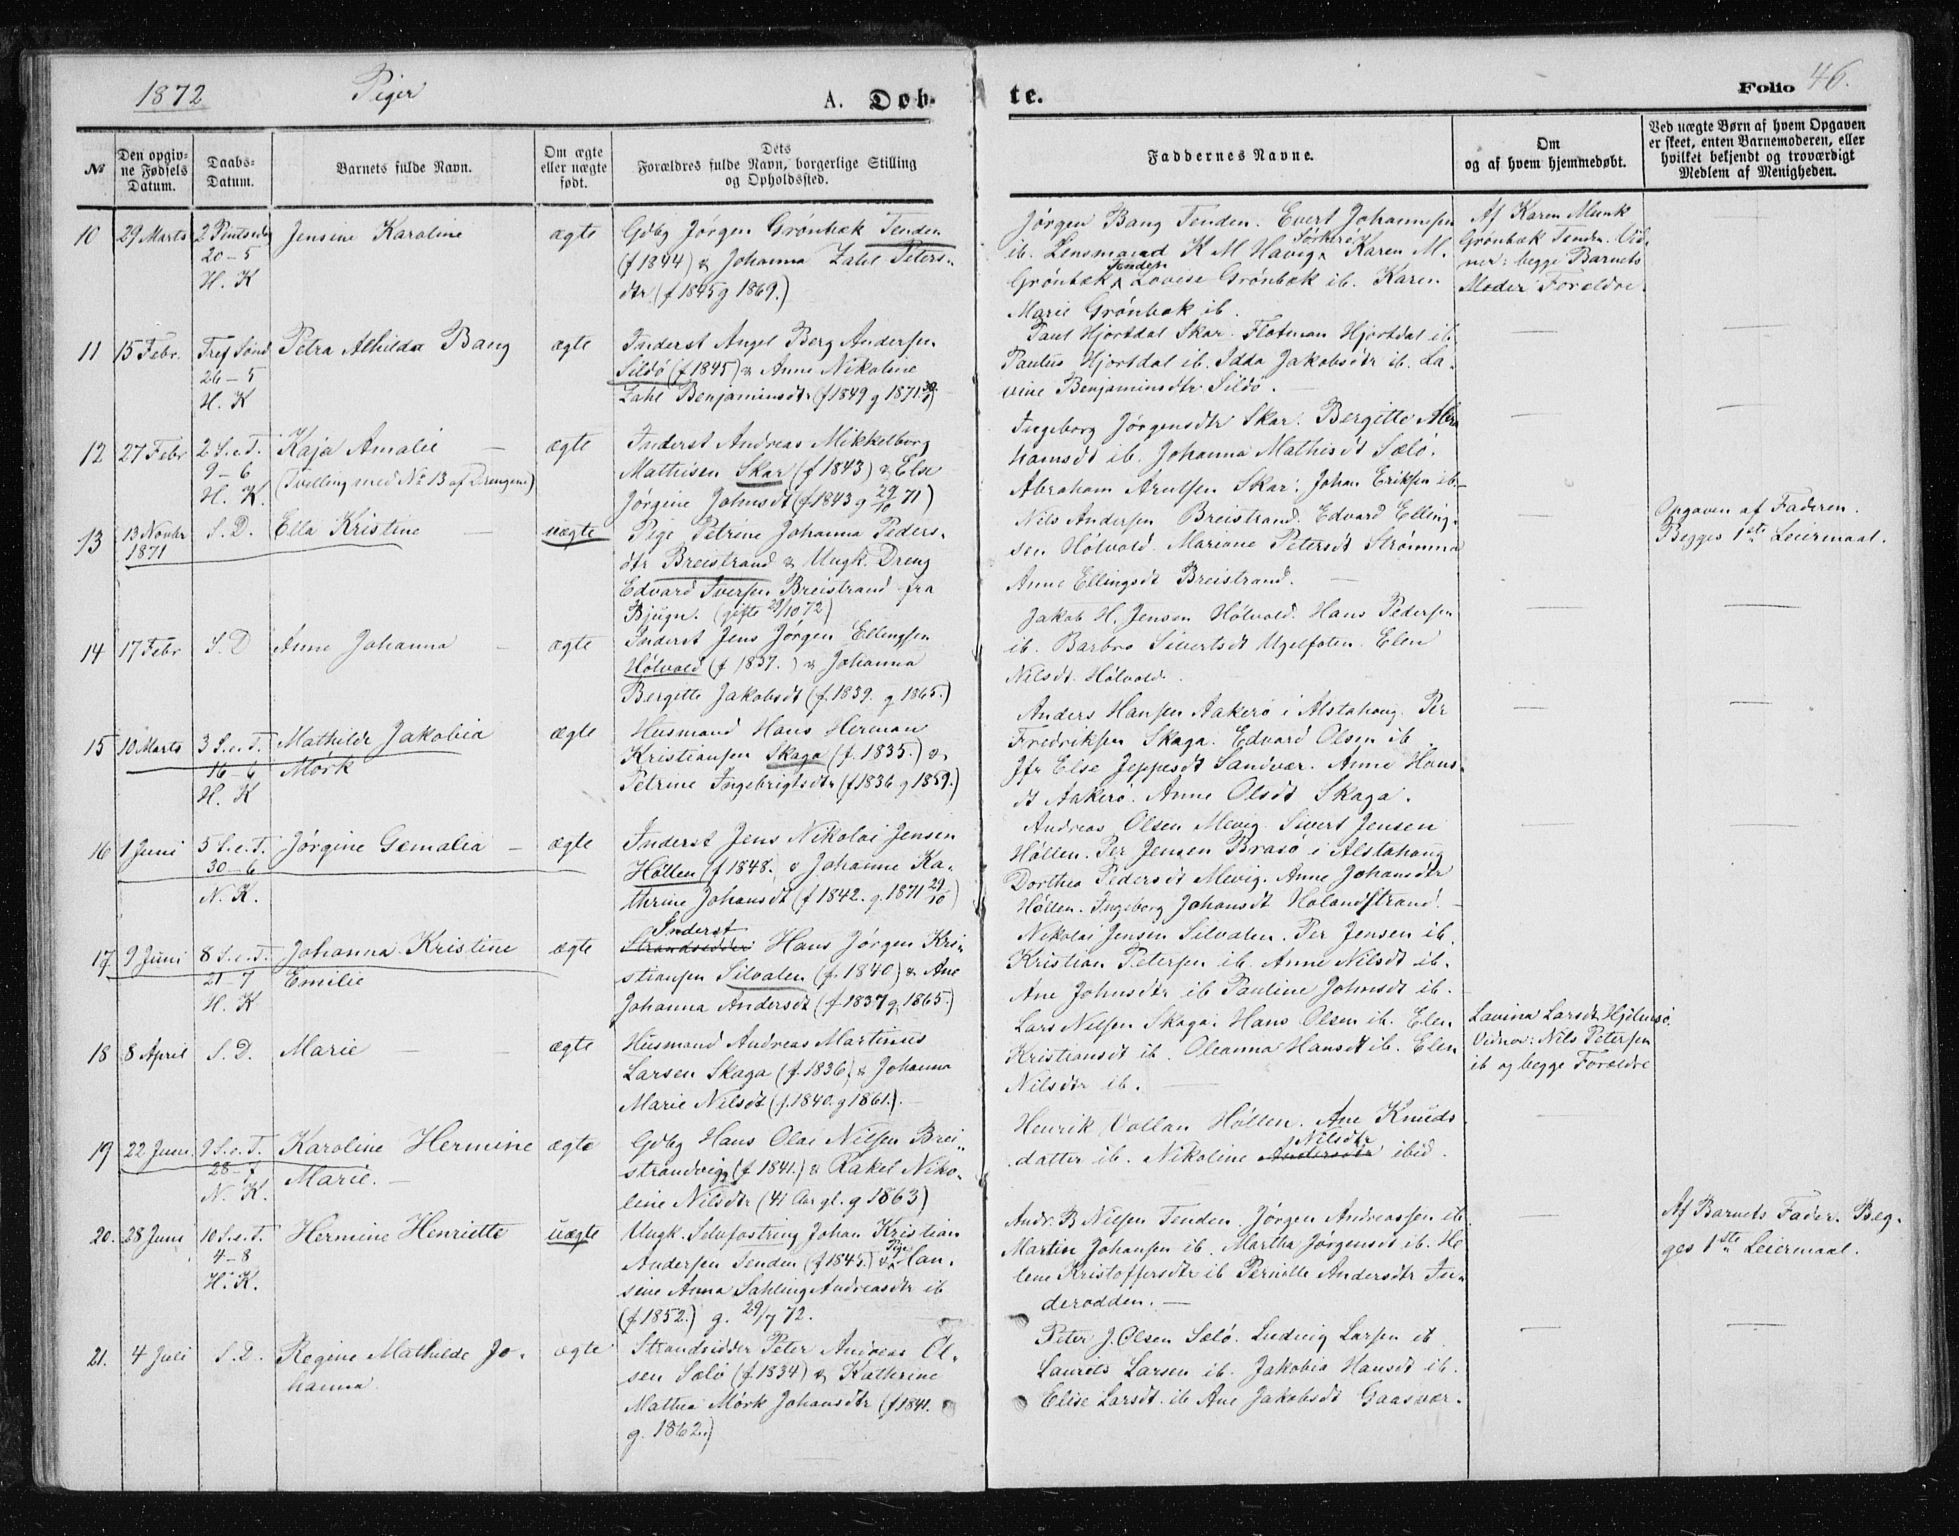 1872 Piger A. Døb-
te. Folio 46.
№
Den opgiv-
ne Fødsels
Datum.
Daabs-
Datum.
Barnets fulde Navn.
Om ægte
eller uægte
født.
Dets
Forældres fulde Navn, borgerlige Stilling
og Opholdssted.
Faddernes Navne.
Om
og af hvem hjemmedøbt.
Ved uægte Børn af hvem Opgaven
er skeet, enten Barnemoderen, eller
hvilket bekjendt og troværdigt
Medlem af Menigheden.
10
29 Marts
2 Pintsedag
20-5
H. K
Jensine Karoline
ægte
Gdbg Jørgen Grønbæk Tenden
(f 1844) & Johanna Zahl Peters-
dtr (f 1845 g 1869.)
Jørgen Bang Tenden. Evert Johannesen
ib. Lensmand K M Havig Sørkerø Karen M.
Grønbæk Tenden Lovise Grønbæk ib. Karen
Marie Grønbæk ib.
Af Karen Munk
Grønbæk Tenden. Vid-
ner: begge Barnets
Moder Forældre
11
15 Febr.
Tref Sønd
26-5
H. K
Petra Alhilda Bang
ægte
Inderst Angel Berg Andersen
Sildø (f 1845) & Anne Nikoline
Zahl Benjaminsdtr (f 1849 g 1871
Paul Hjortdal Skar. Flotman Hjortdal ib.
Paulus Hjortdal ib. Idda Jakobsdtr ib. La-
vine Benjaminsdtr Sildø.
12
27 Febr
2 S. e. T.
9-6
H. K.
Kaja Amalie
(Tvilling med No 13 af Drengene)
ægte
Inderst Andreas Mikkelborg
Mathisen Skar (f 1843) & Else
Jørgine Johnsdt (f 1843 g 29/10 71)
Ingeborg Jørgensdtr Skar. Bergitte Abra
hamsdt ib. Johanna Mathisdt Sælø.
Abraham Arntsen Skar. Johan Eriksen ib.
13
13 Novbr
1871
S. D.
Ella Kristine
uægte
Pige Petrine Johanna Peders-
dtr Breistrand & Ungk. Dreng
Edvard Iversen Breistrand fra
Bjugn. (gifte 29/10 72)
Nils Andersen Breistrand. Edvard Elling-
sen Hølvold. Mariane Petersdt Strømmø
Anne Ellingsdt Breistrand.
Opgaven af Faderen.
Begges 1ste Leiermaal.
14
17 Febr
S. D
Anne Johanna
ægte
Inderst Jens Jørgen Ellingsen
Hølvold (f 1837.) & Johanna
Bergitte Jakobsdt (f. 1839. g 1865.)
Jakob H. Jensen Hølvold. Hans Pedersen
ib. Barbro Sivertsdt Ugelfoten. Elen
Nilsdt. Hølvold.
15
10 Marts
3 S. e. T.
16-6
H. K
Mathilde Jakobia
Mørk
ægte
Husmand Hans Herman
Kristiansen Skaga (f. 1835.) &
Petrine Ingebrigtsdtr (f 1836 g 1859.)
Anders Hansen Aakerø i Alstahoug. Per
Fredriksen Skaga. Edvard Olsen ib.
Jfr Else Jeppesdt Sandvær. Anne Hans-
dt Aakerø. Anne Olsdt Skaga.
16
1 Juni
5 S. e. T.
30-6
N. K.
Jørgine Gemalia
ægte
Inderst Jens Nikolai Jensen
Høllen (f 1848.) & Johanne Ka-
thrine Johansdt (f 1842. g. 1871 29/10)
Andreas Olsen Mevig. Sivert Jensen
Høllen. Per Jensen Brasø i Alstahoug
Dorthea Pedersdt Mevig. Anne Johansdtr
Høllen. Ingeborg Johansdt Holandstrand.
17
9 Juni
8 S. e. T.
21-7
H. K
Johanna Kristine
Emilie
ægte
Inderst
Strandsidder Hans Jørgen Kri-
stiansen Silvalen (f. 1840) & Ane
Johanna Andersdt (f 1837 g 1865.)
Nikolai Jensen Silvalen. Per Jensen ib.
Kristian Petersen ib. Anne Nilsdt ib.
Ane Johnsdtr ib Pauline Johnsdt ib.
18
8 April
S. D.
Marie
ægte
Husmand Andreas Martinus
Larsen Skaga (f. 1836) & Johanna
Marie Nilsdt (f. 1840. g 1861.)
Lars Nilsen Skaga. Hans Olsen ib. Elen
Kristiansdt ib. Oleanna Hansdt ib. Elen
Nilsdtr ib.
Lavina Larsdt Hjelmsø.
Vidner: Nils Petersen
ib og begge Forældre
19
22 Juni
9 S. e. T.
28-7
N. K.
Karoline Hermine
Marie.
ægte
Gdbg Hans Olai Nilsen Brei-
strandvig (f 1841.) & Rakel Niko-
line Nilsdtr (41 Aar gl. g 1863)
Henrik Vollan Høllen. Ane Knuds
datter ib. Nikoline Andersdtr Nilsdtr ibid.
20.
28 Juni
10 S. e. T.
4-8
H. K.
Hermine Henriette
uægte
Ungk. Selvfostring Johan Kristian
Andersen Tenden (f 1845.) & Pige Han-
sine Anna Sahling Andreasdtr ib
(f 1852.) g. 29/7 72.
Andr. B Nilsen Tenden. Jørgen Andreassen ib.
Martin Johansen ib. Martha Jørgensdt ib. He
lene Kristoffersdtr ib Pernille Andersdtr In-
derodden.
Af Barnets Fader. Beg-
ges 1ste Leiermaal.
21.
4 Juli
S. D.
Regine Mathilde Jo-
hanna
ægte
Strandsidder Peter Andreas Ol-
sen Sælø (f 1834) & Kathrine
Mathea Mørk Johansdtr (f 1841.
g. 1862.)
Peter J. Olsen Sælø. Ludvig Larsen ib
Laurits Larsen ib. Jakobia Hansdt ib.
Elise Larsdt. ib Ane Jakobsdt Gaasvær.